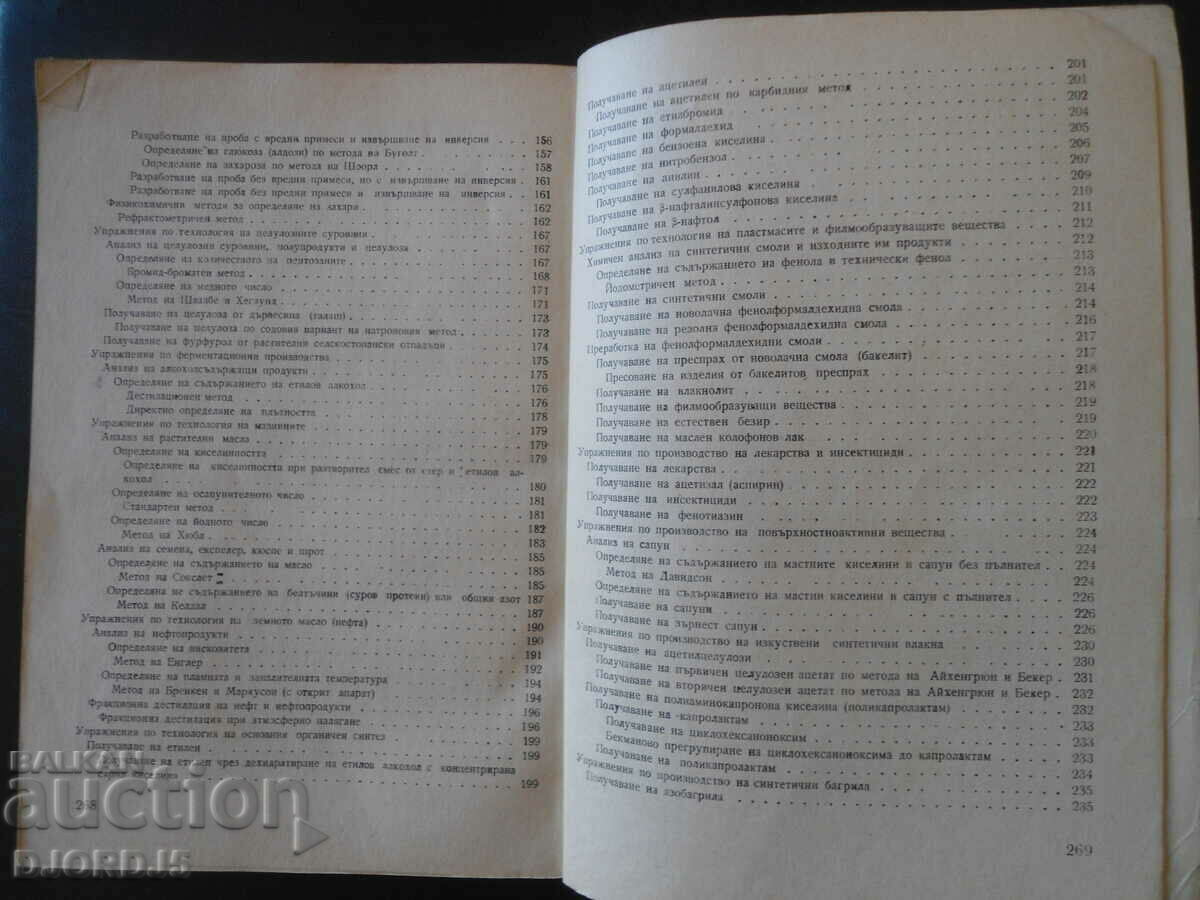 Разработване на проба с вредни примеси и извършване на инверсия . 156
Определяне на глюкоза (алдози) по метода на Буголт . . . 157
Определяне на захароза по метода на Шоорл . . . 158
Разработване на проба без вредни примеси, но с извършване на инверсия . 161
Разработване на проба без вредни примеси и извършване на инверсия . 161
Физикохимични методи за определяне на захари . . . 162
Рефрактометричен метод . . . 162
Упражнения по технология на целулозните суровини . . . 167
Анализ на целулозни суровини, полупродукти и целулоза . . . 167
Определяне на количеството на пентозаните . . . 167
Бромид-броматен метод . . . 168
Определяне на медното число . . . 171
Метод на Швалбе и Хеглунд . . . 171
Получаване на целулоза от дървесина (талаш) . . . 173
Получаване на целулоза по содовия вариант на натроновия метод . 173
Получаване на фурфурол от растителни селскостопански отпадъци . 174
Упражнения по ферментационни производства . . . 175
Анализ на алкохолсъдържащи продукти . . . 175
Определяне на съдържанието на етилов алкохол . . . 176
Дестилационен метод . . . 176
Директно определяне на плътността . . . 178
Упражнения по технология на мазнините . . . 179
Анализ на растителни масла . . . 179
Определяне на киселинността . . . 179
Определяне на киселинността при разтворител смес от етер и етилов ал-
кохол . . . 180
Определяне на осапунителното число . . . 181
Стандартен метод . . . 181
Определяне на йодното число . . . 182
Метод на Хюбл . . . 183
Анализ на семена, експелер, кюспе и шрот . . . 185
Определяне на съдържанието на масло . . . 185
Метод на Сокслет . . . 185
Определяна не съдържанието на белтъчини (суров протеин) или общия азот 187
Метод на Келдал . . . 187
Упражнения по технология на земното масло (нефта) . . . 190
Анализ на нефтопродукти . . . 190
Определяне на вискозитета . . . 191
Метод на Енглер . . . 192
Определяне на пламната и запалителната температура . . . 194
Метод на Бренкен и Маркусон (с открит апарат) . . . 194
Фракционна дестилация на нефт и нефтопродукти . . . 196
Фракционна дестилация при атмосферно налягане . . . 196
Упражнения по технология на основния органичен синтез . . . 199
Получаване на етилен . . . 199
Получаване на етилен чрез дехидратиране на етилов алкохол с концентрирана
сярна киселина . . . 199
268
Получаване на ацетилен . . . 201
Получаване на ацетилен по карбидния метод . . . 201
Получаване на етилбромид . . . 202
Получаване на формалдехид . . . 204
Получаване на бензоена киселина . . . 205
Получаване на нитробензол . . . 206
Получаване на анилин . . . 207
Получаване на сулфанилова киселина . . . 209
Получаване на β-нафталинсулфонова киселина . . . 210
Получаване на β-нафтол . . . 211
Упражнения по технология на пластмасите и филмообразуващите вещества . . . 212
Химичен анализ на синтетични смоли и изходните им продукти . . . 212
Определяне на съдържанието на фенола в технически фенол . . . 213
Йодометричен метод . . . 213
Получаване на синтетични смоли . . . 214
Получаване на новолачна фенолформалдехидна смола . . . 214
Получаване на резолна фенолформалдехидна смола . . . 216
Преработка на фенолформалдехидни смоли . . . 217
Получаване на преспрах от новолачна смола (бакелит) . . . 217
Пресоване на изделия от бакелитов преспрах . . . 218
Получаване на влакнолит . . . 218
Получаване на филмообразуващи вещества . . . 219
Получаване на естествен безир . . . 219
Получаване на маслен колофонов лак . . . 220
Упражнения по производство на лекарства и инсектициди . . . 221
Получаване на лекарства . . . 221
Получаване на ацетизал (аспирин) . . . 222
Получаване на инсектициди . . . 222
Получаване на фенотиазин . . . 223
Упражнения по производство на повърхностноактивни вещества . . . 224
Анализ на сапун . . . 224
Определяне на съдържанието на мастните киселини в сапун без пълнител . 224
Метод на Давидсон . . . 224
Определяне на съдържанието на мастни киселини в сапун с пълнител . 226
Получаване на сапуни . . . 226
Получаване на зърнест сапун . . . 226
Упражнения по производство на изкуствени синтетични влакна . . . 230
Получаване на ацетилцелулози . . . 230
Получаване на първичен целулозен ацетат по метода на Айхенгрюн и Бекер . 231
Получаване на вторичен целулозен ацетат по метода на Айхенгрюн и Бекер . 232
Получаване на полиаминокапронова киселина (поликапролактам) . . . 232
Получаване на -капролактам . . . 233
Получаване на циклохексаноноксим . . . 233
Бекманово прегрупиране на циклохексаноноксима до капролактам . . . 233
Получаване на поликапролактам . . . 234
Упражнения по производство на синтетични багрила . . . 235
Получаване на азобагрила . . . 235
269
БАЛКАН
auction
DJORDJ5